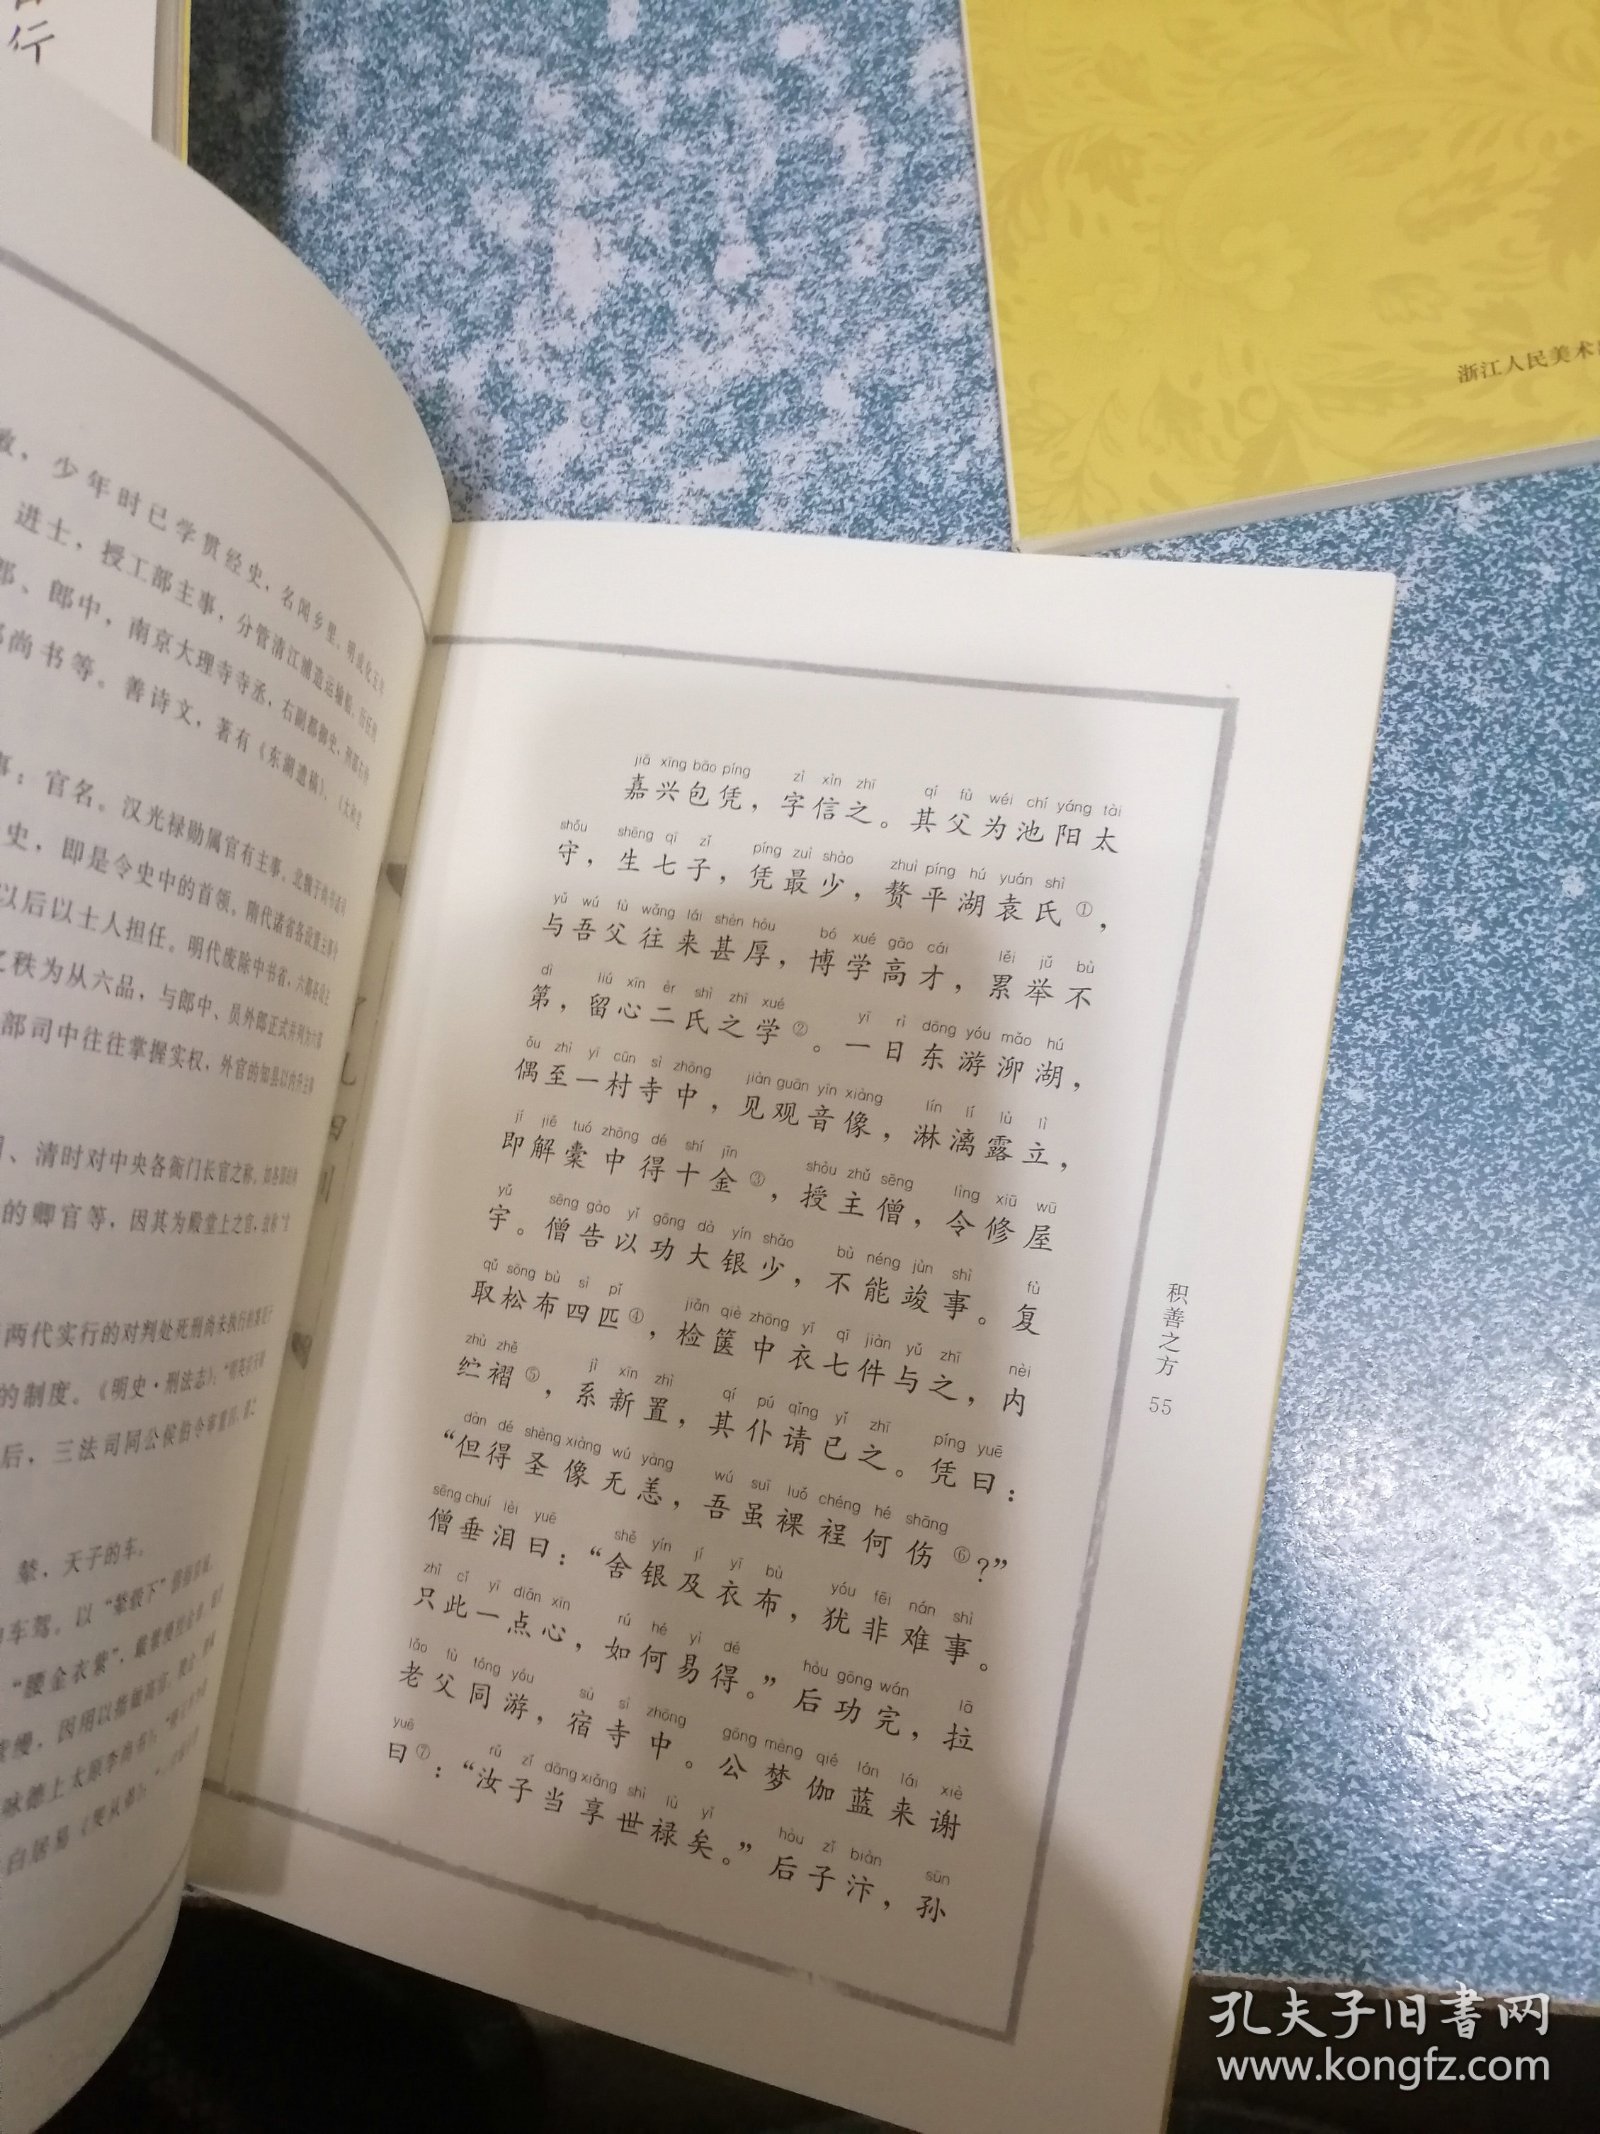 行
浙江人民美术
敏，少年时已学贯经史，名闻乡里。明成化五年
进士，授工部主事，分管清江浦造运输船。历任
郎、郎中，南京大理寺寺丞，右副都御史，刑部右侍
部尚书等。善诗文，著有《东湖遗稿》、
事：官名。汉光禄勋属官有主事。北魏于尚书诸司
史，即是令史中的首领。隋代诸省各设置主事令
以后以士人担任。明代废除中书省，六部各设主
之秩为从六品，与郎中、员外郎正式并列为六部
部司中往往掌握实权，外官的知县以内升主事
、清时对中央各衙门长官之称。如各部的尚
的卿官等，因其为殿堂上之官，故称“堂
两代实行的对判处死刑尚未执行的案犯于
的制度。《明史·刑法志》：“
后，三法司同公侯伯会审重囚，谓之
辇，天子的车。
车驾。以“辇毂下”借指京城。
“腰金衣紫”
因用以指做高官。
咏德上太原李尚书》：“
白居易
jiā xīng bāo píng zì xìn zhī qí fù wéi chí yáng tài
嘉兴包凭，字信之。其父为池阳太
shǒu shēng qī zǐ píng zuì shào zhuì píng hú yuán shì
守，生七子，凭最少，赘平湖袁氏①，
yǔ wú fù wǎng lái shèn hòu bó xué gāo cái lěi jǔ bù
与吾父往来甚厚，博学高才，累举不
dì liú xīn èr shì zhī xué yī rì dōng yóu mǎo hú
第，留心二氏之学②。一日东游泖湖，
ǒu zhì yī cūn sì zhōng jiàn guān yīn xiàng lín lí lù lì
偶至一村寺中，见观音像，淋漓露立，
jí jiě tuó zhōng dé shí jīn shòu zhǔ sēng lìng xiū wū
即解橐中得十金③，授主僧，令修屋
yǔ sēng gào yǐ gōng dà yín shǎo bù néng jùn shì fù
宇。僧告以功大银少，不能竣事。复
qǔ sōng bù sì pǐ jiǎn qiè zhōng yī qī jiàn yǔ zhī nèi
取松布四匹④，检箧中衣七件与之，内
zhù zhě jì xīn zhì qí pú qǐng yǐ zhī píng yuē
纻褶⑤，系新置，其仆请已之。凭曰：
dàn dé shèng xiàng wú yàng wú suī luǒ chéng hé shāng
“但得圣像无恙，吾虽裸裎何伤⑥？”
sēng chuí lèi yuē shě yín jí yī bù yóu fēi nán shì
僧垂泪曰：“舍银及衣布，犹非难事。
zhǐ cǐ yī diǎn xīn rú hé yì dé hòu gōng wán lā
只此一点心，如何易得。”后功完，拉
lǎo fù tóng yóu sù sì zhōng gōng mèng qié lán lái xiè
老父同游，宿寺中。公梦伽蓝来谢
yuē rǔ zǐ dāng xiǎng shì lù yǐ hòu zǐ biàn sūn
曰⑦：“汝子当享世禄矣。”后子汴，孙
积善之方
55
孔夫子旧书网
www.kongfz.com